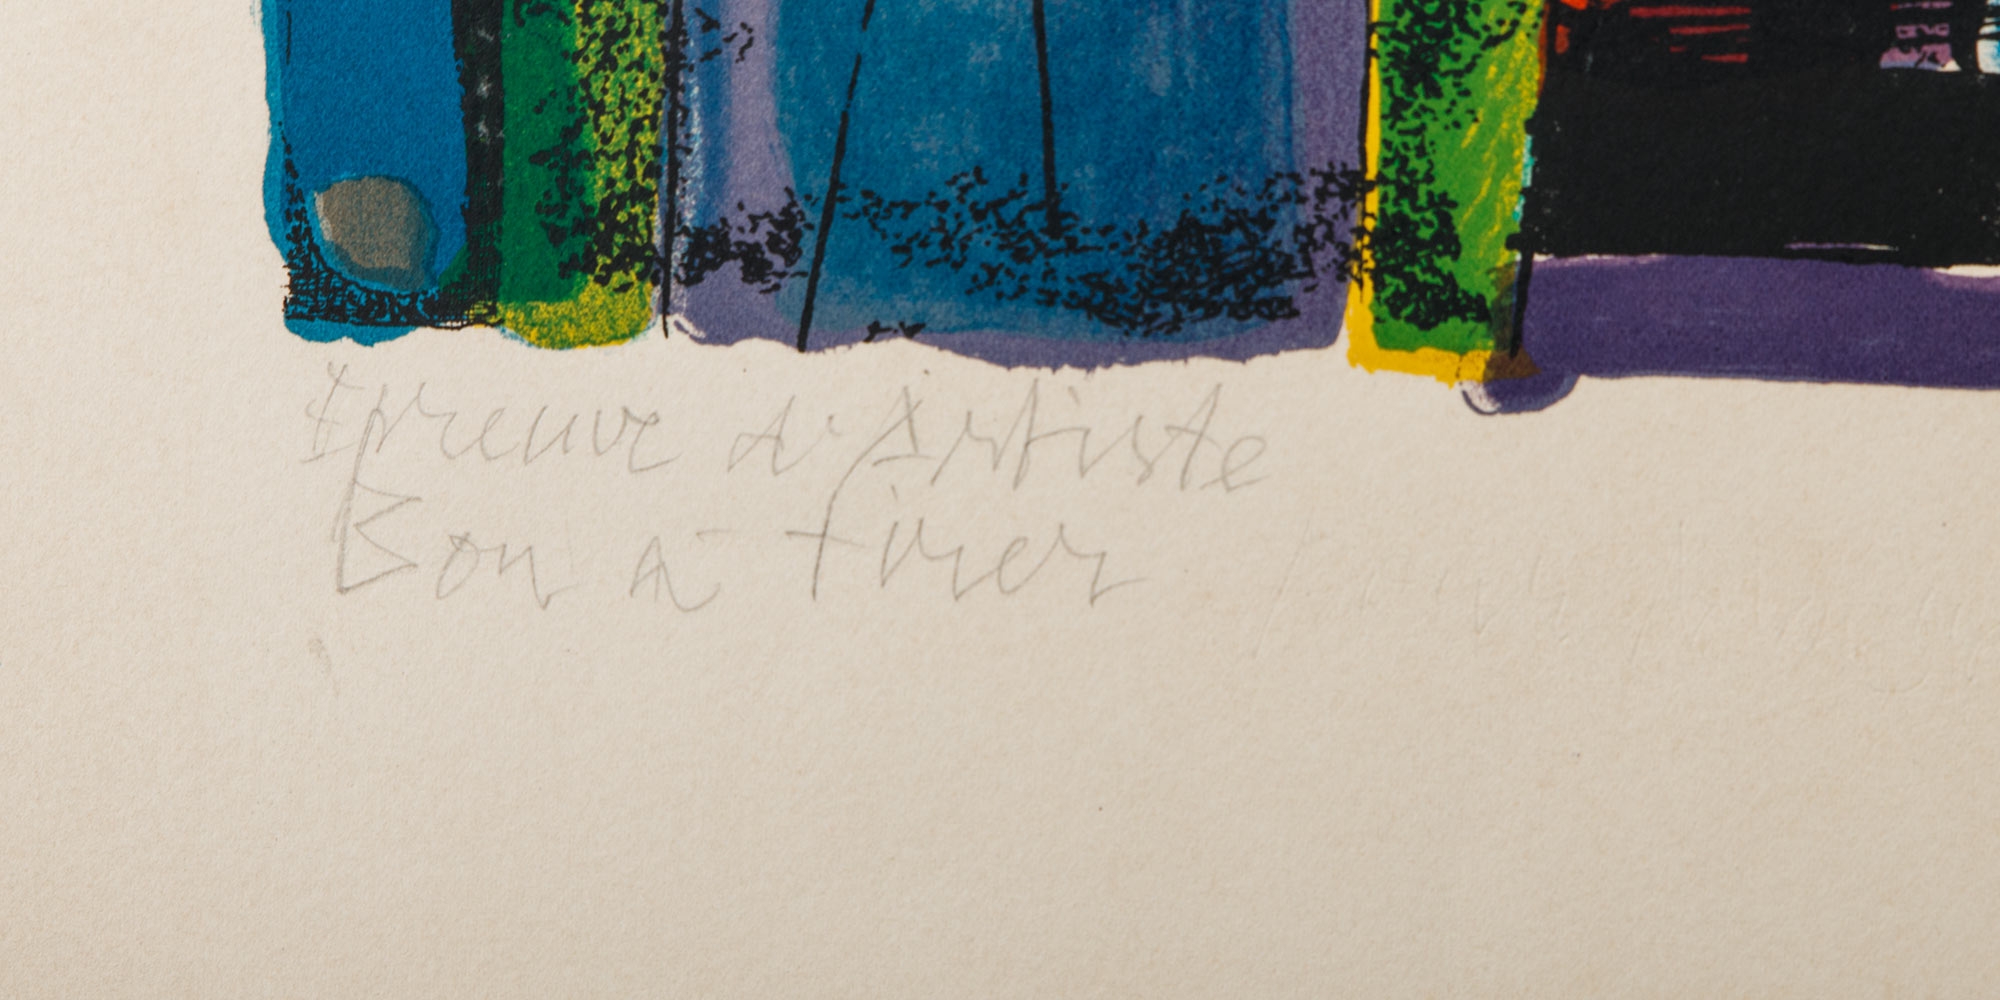 Epreuve d'Artiste
Bon à tirer